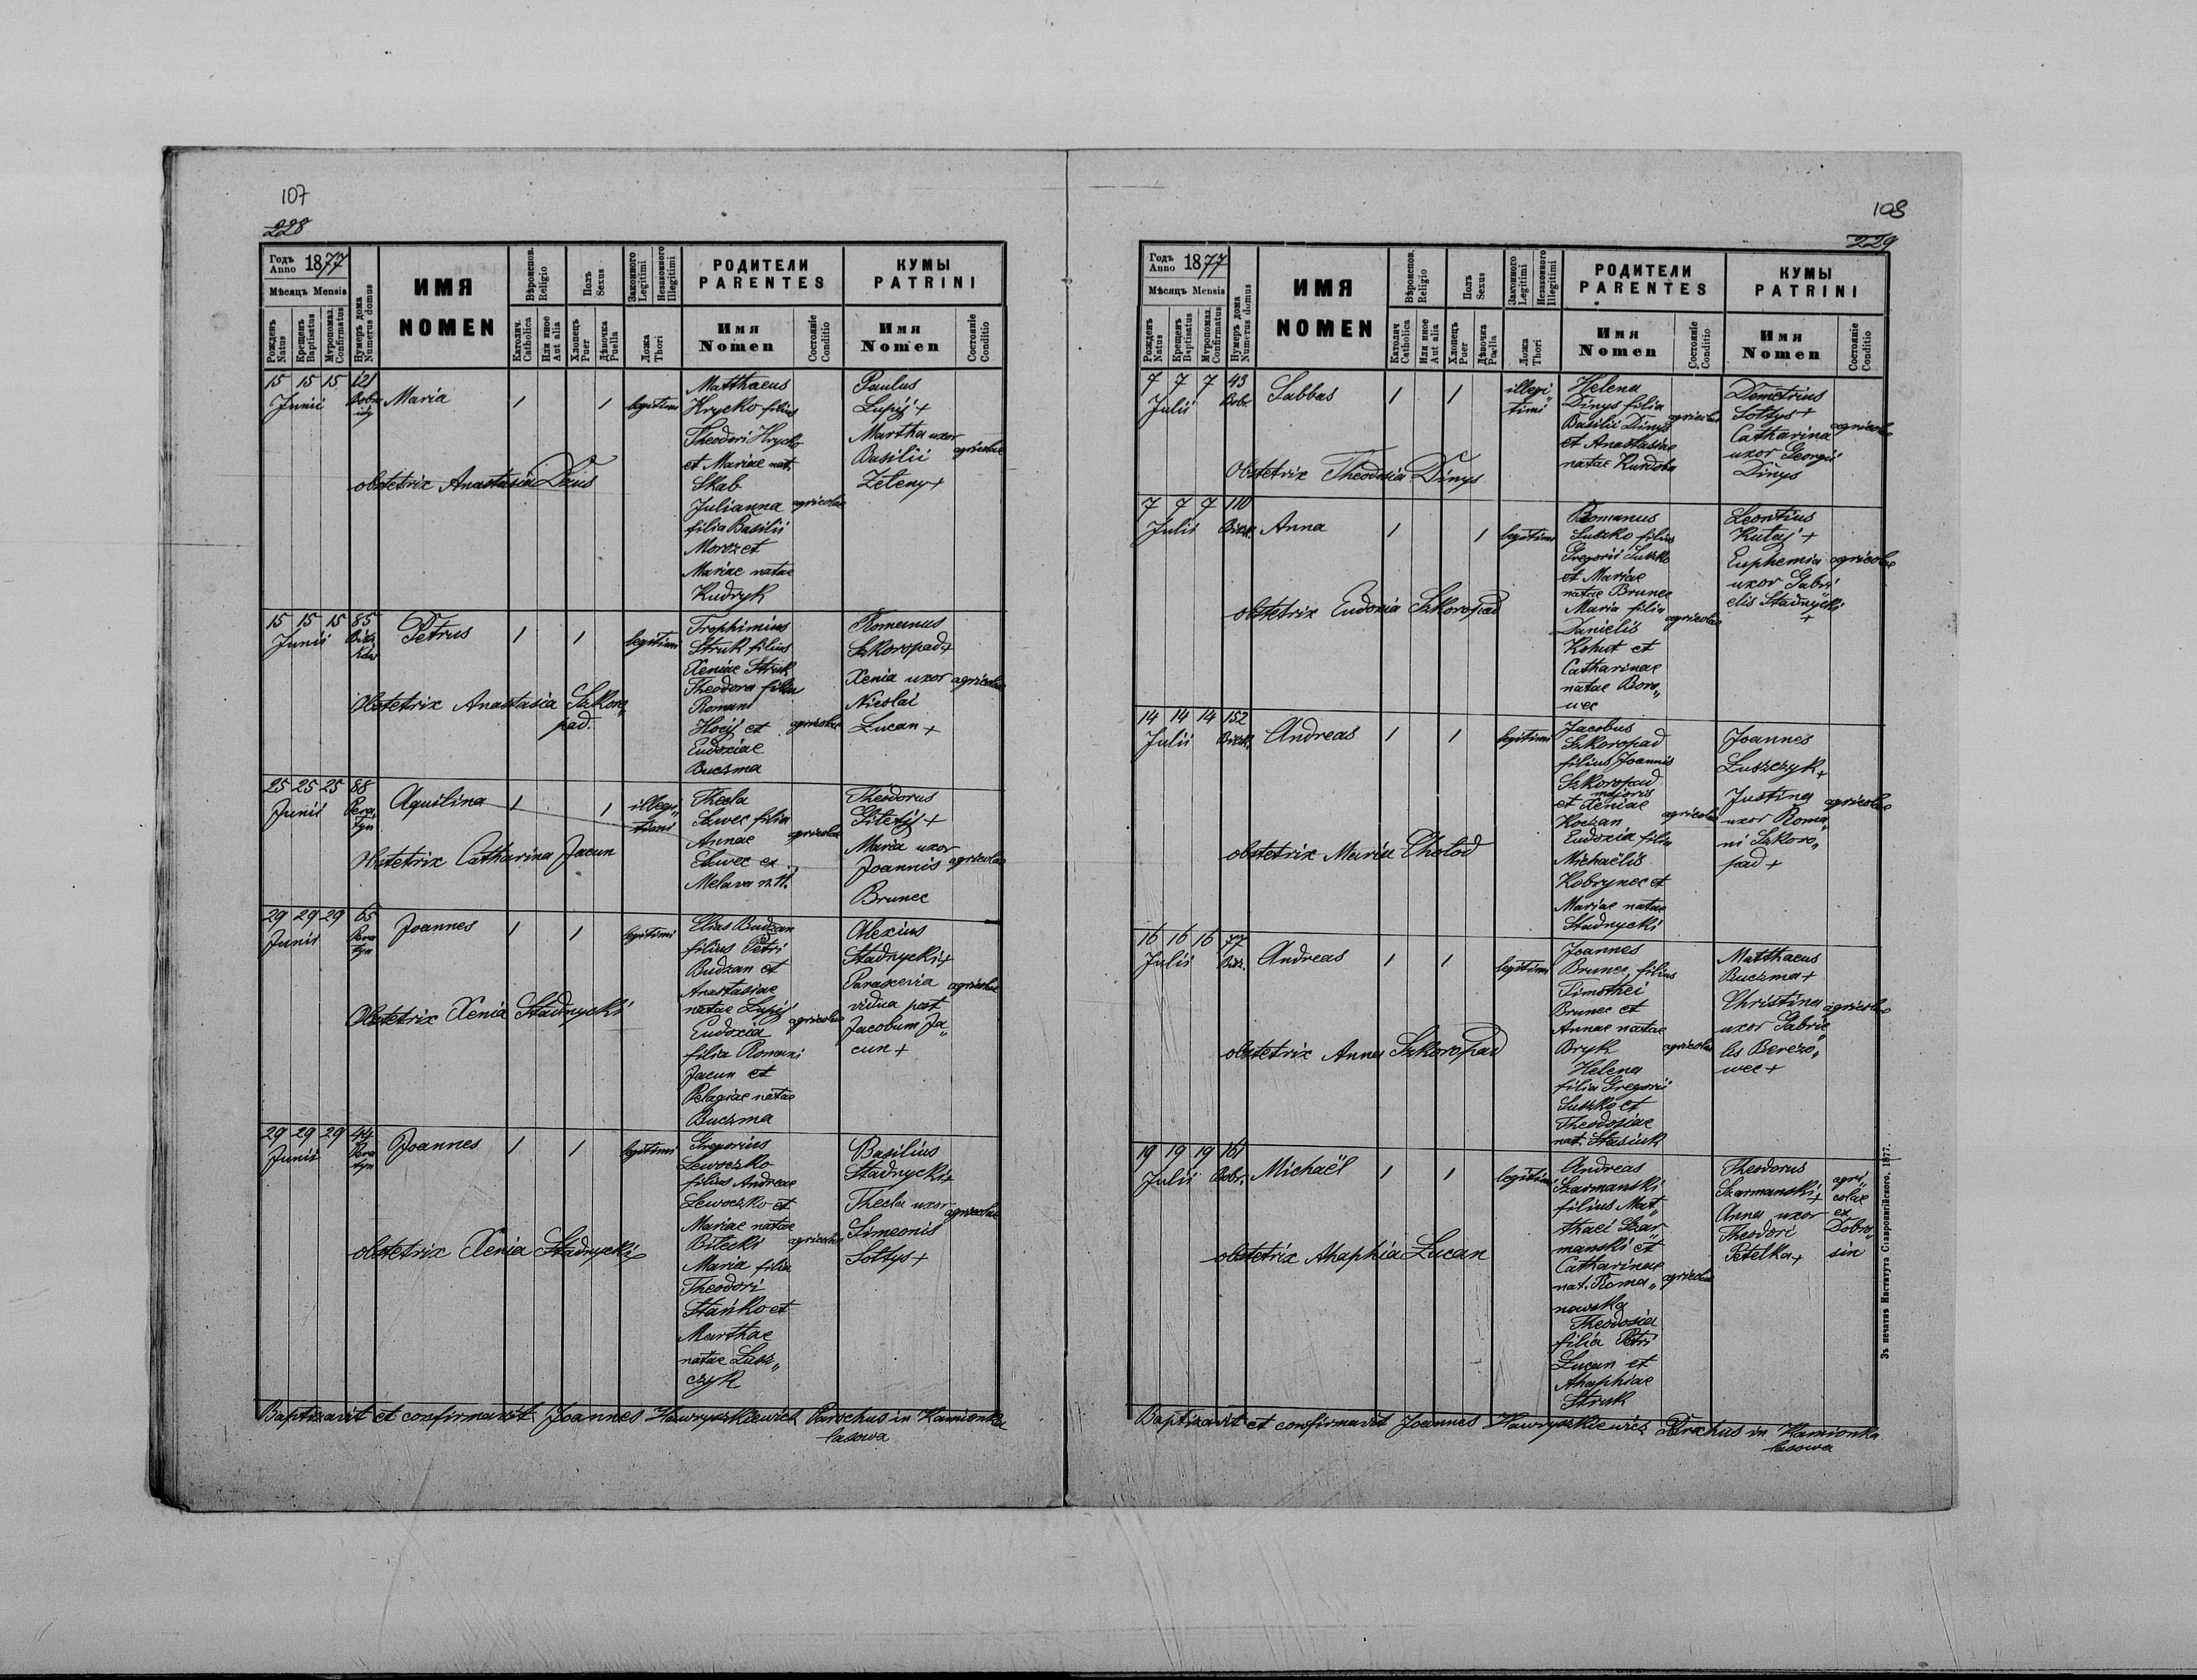 107
228
Годъ Anno 1877
Мѣсяцъ Mensis
Рожденъ Natus
Крещенъ Baptisatus
Мѵропомаз. Confirmatus
Нумеръ дома Numerus domus
ИМЯ
NOMEN
Вѣроиспов. Religio
Католич. Catholica
Или иное Aut alia
Полъ Sexus
Хлопецъ Puer
Дѣвочка Puella
Законного Legitimi
Незаконного Illegitimi
Ложа Thori
РОДИТЕЛИ
PARENTES
Имя
Nomen
Состояніе Conditio
КУМЫ
PATRINI
Имя
Nomen
Состояніе Conditio
15 15 15 121
Junii
Maria
1 1 legitimi
Matthaeus
Hrycko filius
Theodori Hrycko
et Mariae nat.
Skab
Julianna agricolae
filia Basilii
Moroz et
Mariae natae
Kudryk
Paulus
Łupij +
Martha uxor
Basilii agricolae
Zełeny +
obstetrix Anastasia Dzius
15 15 15 85
Junii
Petrus
1 1 legitimi
Trophimius
Struk filius
Xeniae Struk
Theodora filia
Romani
Hoij et agricolae
Eudoxiae
Buczma
Romanus
Szkoropad +
Xenia uxor agricolae
Nicolai
Łucan +
Obstetrix Anastasia Szkoro„
pad.
25 25 25 88
Junii Pera„
tyn
Aquilina
1 1 illegi„
timi
Thecla
Szwec filia
Annae agricolae
Szwec ex
Theodorus
Gitetij +
Maria uxor
Joannis agricolae
Brunec
Obstetrix Catharina Jacun
29 29 29 65
Junii Pera
tyn
Joannes
1 1 legitimi
Elias Budzan
filius Petri
Budzan et
Anastasiae
natae Łupij
Eudoxia agricolae
filia Romani
Jacun et
Pelagiae natae
Buczma
Alexius
Stadnycki +
Parascevia agricolae
vidua post
Jacobum Ja„
cun +
Obstetrix Xenia Stadnycki
29 29 29 44
Junii Pera
tyn
Joannes
1 1 legitimi
Gregorius
Lewoczko
filius Andreae
Lewoczko et
Mariae natae
Biłecki agricolae
Maria filia
Theodori
Stańko et
Marthae
natae Łusz„
czyk
Basilius
Stadnycki +
Thecla uxor
agricolae
Simeonis
Sołtys +
obstetrix Xenia Stadnycki
Baptizavit et confirmavit Joannes Hawryszkiewicz Parochus in Kamionka
lasowa
108
229
Годъ Anno 1877
Мѣсяцъ Mensis
Рожденъ Natus
Крещенъ Baptisatus
Мѵропомаз. Confirmatus
Нумеръ дома Numerus domus
ИМЯ
NOMEN
Вѣроиспов. Religio
Католич Catholica
Или иное Aut alia
Полъ Sexus
Хлопецъ Puer
Дѣвочка Puella
Законного Legitimi
Незаконного Illegitimi
Ложа Thori
РОДИТЕЛИ
PARENTES
Имя
Nomen
Состояніе Conditio
КУМЫ
PATRINI
Имя
Nomen
Состояніе Conditio
7 7 7 43
Julii Bobr.
Sabbas
1 1 illegi„
timi
Helena
Dinys filia
Basilii Dinys agricolae
et Anastasiae
natae
Demetrius
Sołtys +
Catharina agricolae
uxor Georgii
Dinys
Obstetrix Theodosia Dinys
7 7 7 110
Julii
Anna
1 1 legitimi
Romanus
Suszko filius
Gregorii Suszko
et Mariae
natae Brunec
Maria filia agricolae
Danielis
Kohut et
Catharinae
natae Boro„
wec
Leontius
Kutaj +
Euphemia agricolae
uxor Gabri„
elis Stadnycki
+
obstetrix Eudoxia Szkoropad
14 14 14 152
Julii
Andreas
1 1 legitimi
Jacobus
Szkoropad
filius Joannis
Szkoropad
majoris
et Xeniae
Koczan agricolae
Eudoxia filia
Michaëlis
Kobrynec et
Mariae natae
Stadnycki
Joannes
Łuszczyk +
Justina agricolae
uxor Roma„
ni Szkoro„
pad +
obstetrix Maria Chołod
16 16 16 77
Julii
Andreas
1 1 legitimi
Joannes
Brunec, filius
Timothei
Brunec et
Annae natae
Bryk agricolae
Helena
filia Gregorii
Suszko et
Theodosiae
nat. Stasiuk
Matthaeus
Buczma +
Christina agricolae
uxor Gabrie„
lis Berezo„
wec +
obstetrix Anna Szkoropad
19 19 19 161
Julii Bobr.
Michaël
1 1 legitimi
Andreas
Szarmanski
filius Mat„
thaei Szar„
manski et
Catharinae
nat. Roma„ agricolae
nowska
Theodosia
filia Petri
Łucan et
Ahaphiae
Struk
Theodorus agri„
Szarmanski + colae
Anna uxor ex
Theodori Dobro„
Petelka + sin
obstetrix Ahaphia Łucan
Baptizavit et confirmavit Joannes Hawryszkiewicz Parochus in Kamionka
lasowa
Зъ печатнѣ Института Ставропигійского, 1877.